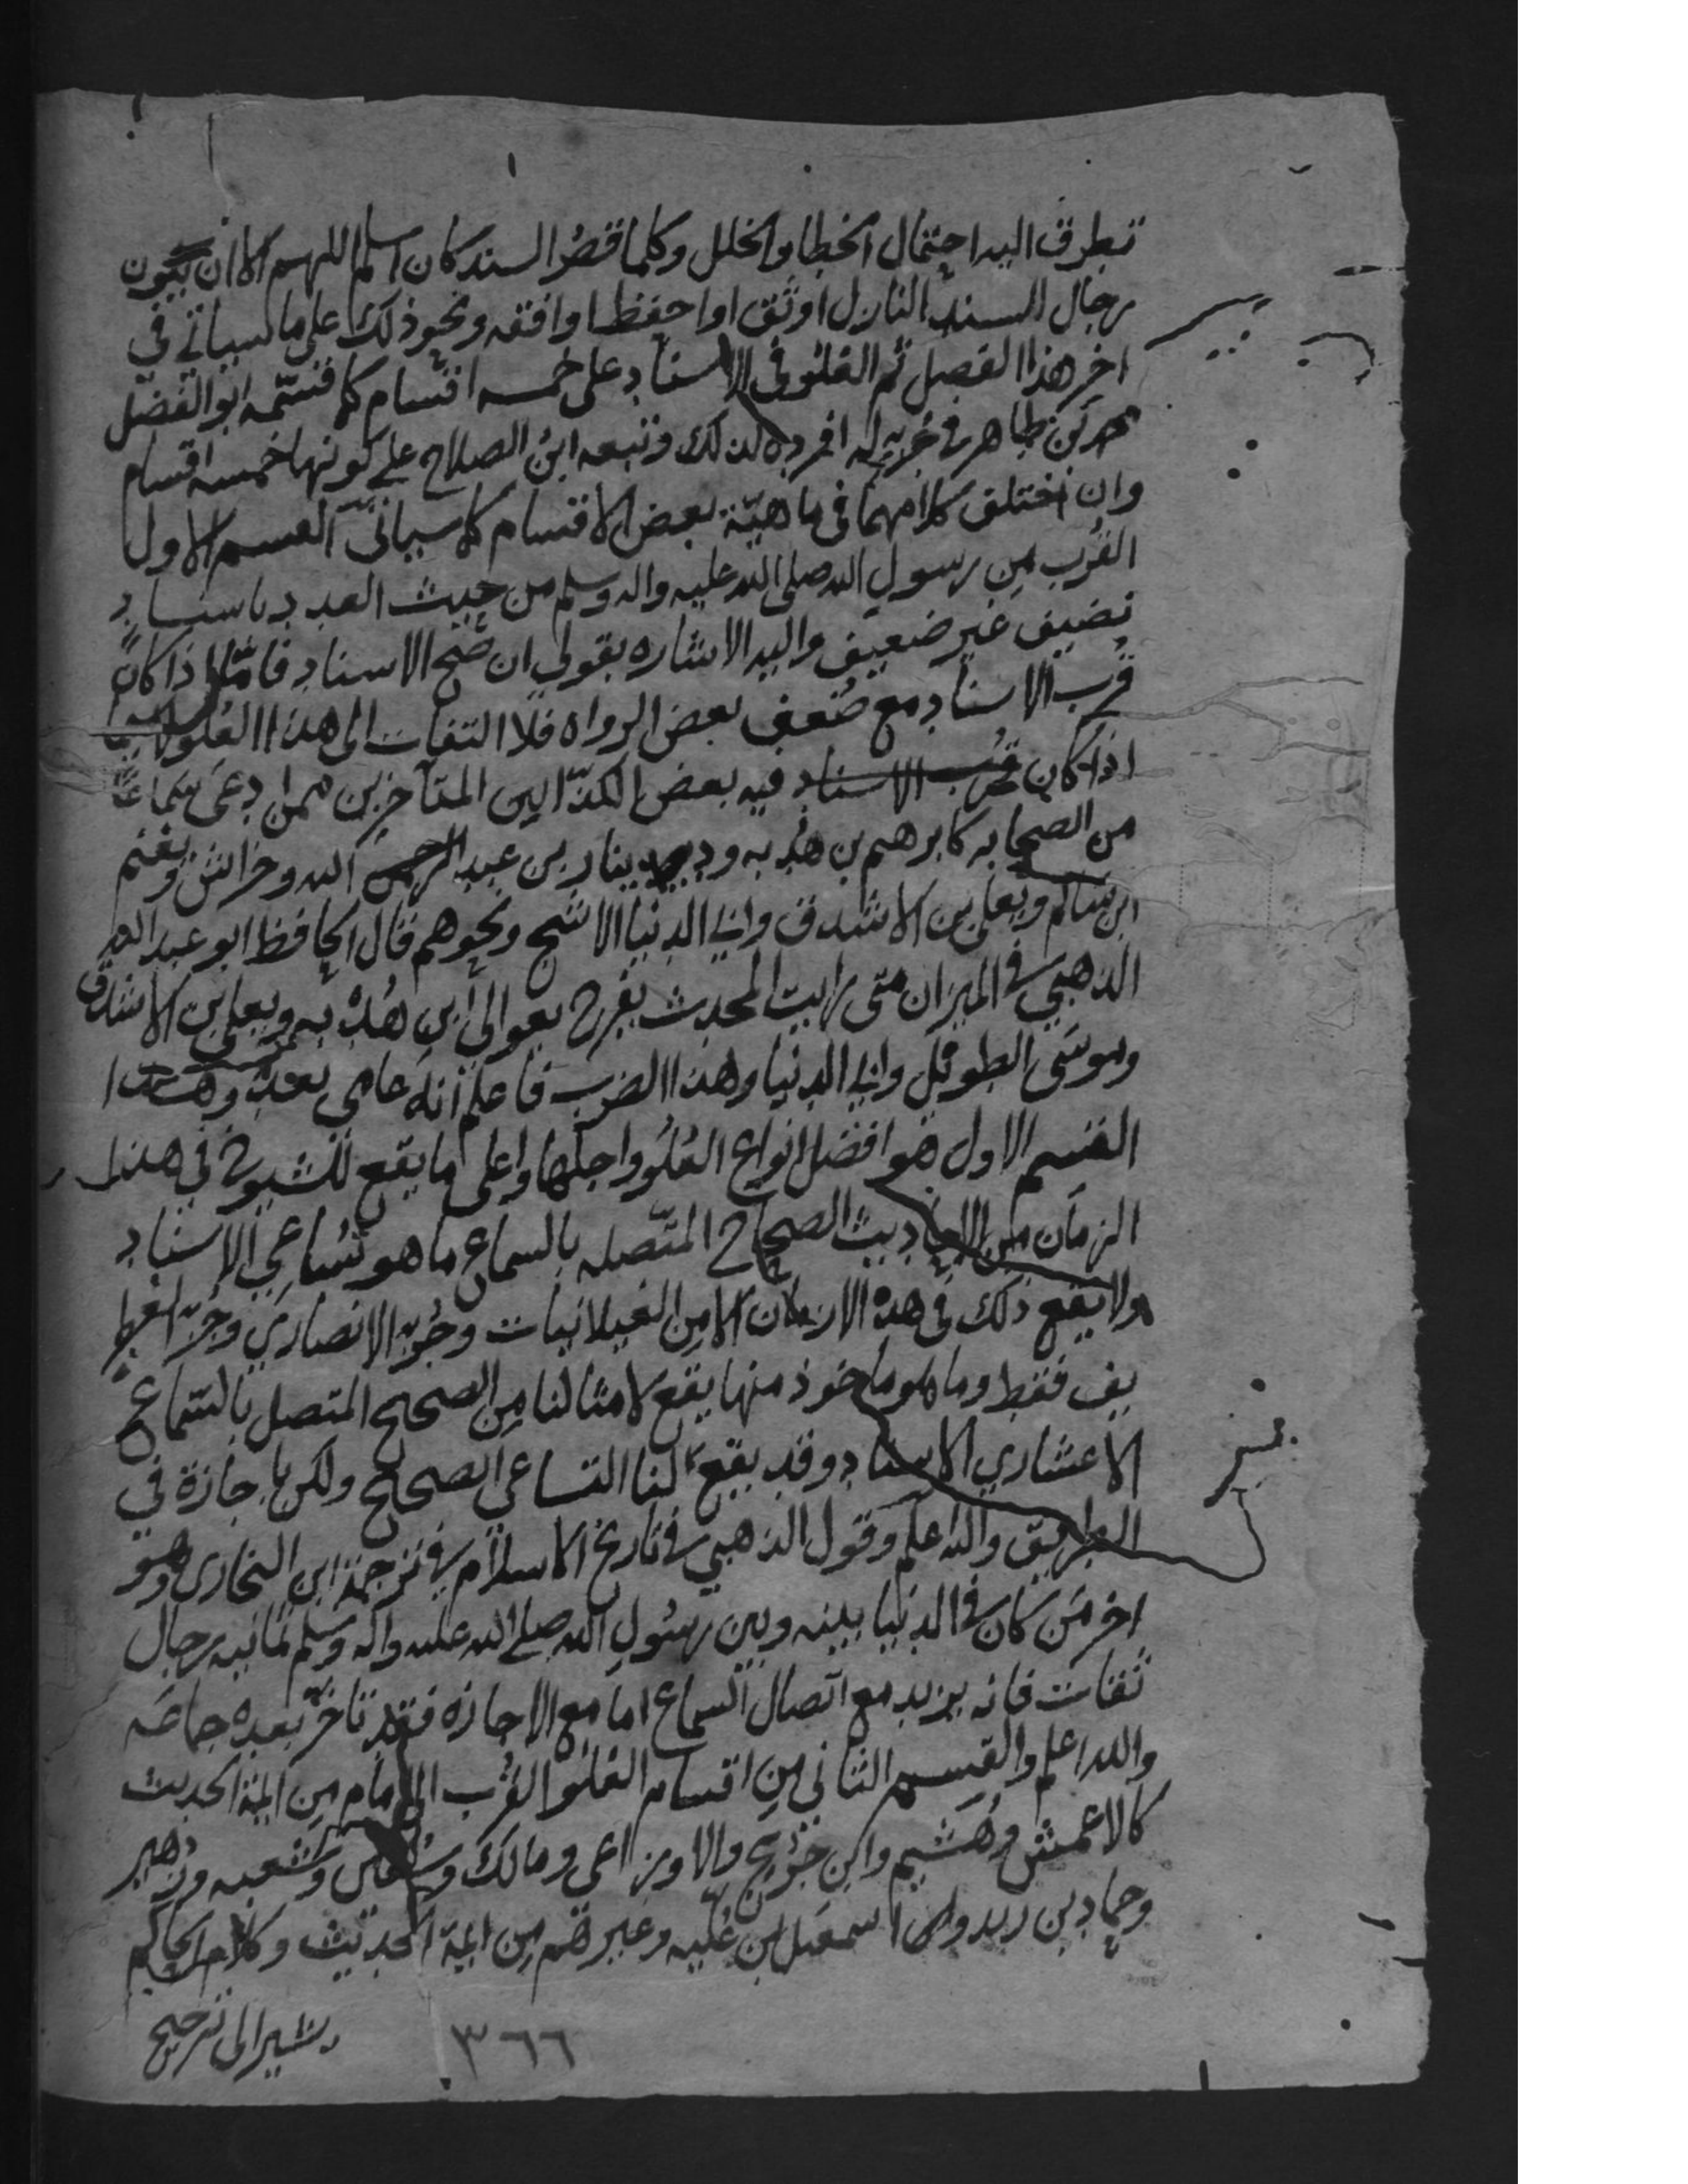 تطرق اليه احتمال الخطا والخلل وكلما قصر السند كان اسلم اللهم الا ان يكون
رجال السند النازل اوثق او احفظ او افقه ونحو ذلك على ما سياتي في
اخر هذا الفصل ثم العلو في الاسناد على خمسه اقسام كما قسمه ابو الفضل
محمد بن طاهر في جزء له افرده لذلك وتبعه ابن الصلاح على كونها خمسه اقسام
وان اختلف كلامهما في ماهية بعض الاقسام كما سياتي القسم الاول
القرب من رسول الله صلى الله عليه واله وسلم من حيث العدد باسناد
نضيف غير ضعيف واليه الاشاره بقولي ان صح الاسناد فاما اذا كان
قرب الاسناد مع ضعف بعض الرواه فلا التفات الى هذا العلو لا سيما
اذا كان قرب الاسناد فيه بعض الكذابين المتاخرين ممن ادعى سماعا
من الصحابه كابرهيم بن هدبه ودينار بن عبد الله وخراش ونعيم
ابن سالم ويعلى بن الاشدق وابي الدنيا الاشج ونحوهم قال الحافظ ابو عبد الله
الذهبي في الميزان متى رايت المحدث يفرح بعوالي ابن هدبه ويعلى بن الاشدق
وموسى الطويل وابي الدنيا وهذا الضرب فاعلم انه عامي بعد وهذا
القسم الاول هو افضل انواع العلو واجلها واعلى ما يقع للشيوخ في هذا
الزمان من الاحاديث الصحاح المتصله بالسماع ما هو تساعي الاسناد
ولا يقع ذلك في هذه الازمان الا من الغيلانيات وجزء الانصاري وجزء الغطر
يف فقط وما هو ماخوذ منها يقع لامثالنا من الصحيح المتصل بالسماع
الا عشاري الاسناد وقد يقع لنا التساعي الصحيح ولكن باجازة في
الطريق والله اعلم وقول الذهبي في تاريخ الاسلام في ترجمة ابن البخاري وهو
اخر من كان في الدنيا بينه وبين رسول الله صلى الله عليه واله وسلم ثمانيه رجال
ثقات فانه يريد مع اتصال السماع اما مع الاجازه فقد تاخر بعده جماعه
والله اعلم والقسم الثاني من اقسام العلو القرب الى امام من ايمة الحديث
كالاعمش وهشيم وابن جريج والاوزاعي ومالك وسفين وشعبه وزهير
وحماد بن زيد واسمعيل ابن عليه وغيرهم من ايمة الحديث وكلام الحاكم
يشير الى ترجيح
٣٦٦